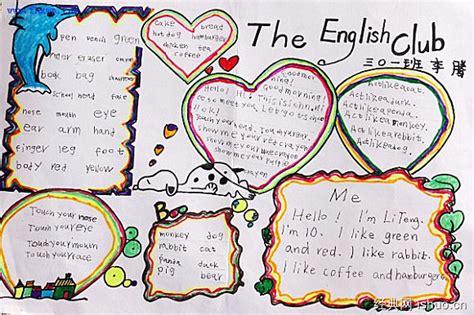 The English Club
三0一班 李腾
cake bread
hot dog hamburger
chicken tea
coffee
pen pencil green
ruler eraser
book bag
school head face
nose mouth eye
ear arm hand
finger leg foot
body red yellow
Good morning!
Good morning!
Hi! This is
Let's go to school
Touch your head.
Show me your
Show me your
Show me your
Act like a cat.
Act like a duck.
Act like a panda.
Act like a monkey.
Act like a rabbit.
Act like a dog.
Touch your nose
Touch your eye
Touch your mouth
Touch your face
monkey dog
rabbit cat
panda duck
pig bear
Me
Hello! I'm Li Teng.
I'm 10. I like green
and red. I like rabbit.
I like coffee and hamburgers
经典网 ishuo.cn